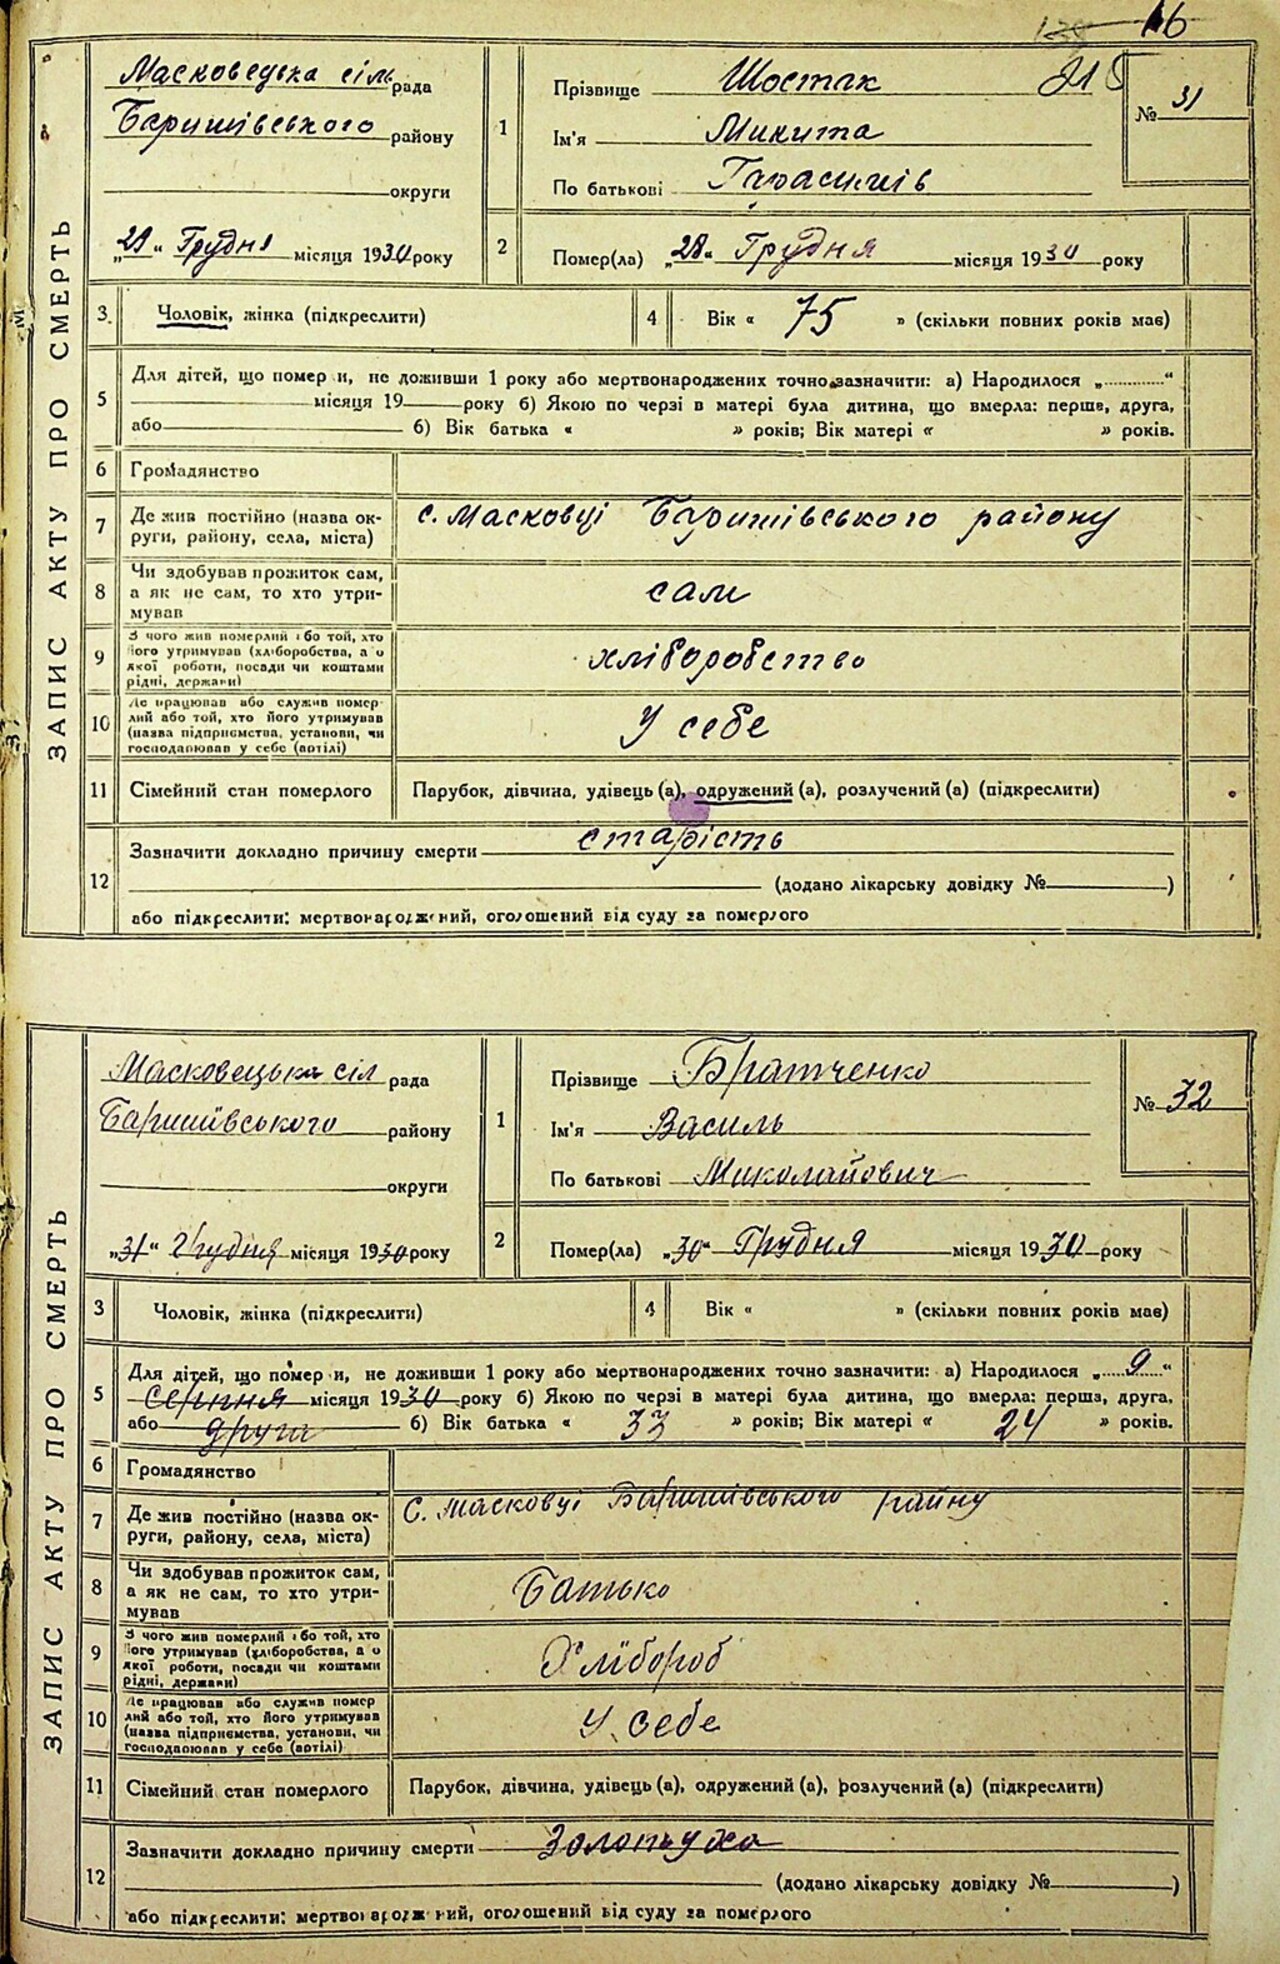 16
ЗАПИС АКТУ ПРО СМЕРТЬ
Масковецька сіль рада
Баришівського району
округи
„29“ Грудня місяця 1930 року
1
Прізвище Шостак
Ім'я Микита
По батькові Гарасимів
№ 31
2
Помер(ла) „28“ Грудня місяця 1930 року
3
Чоловік, жінка (підкреслити)
4
Вік « 75 » (скільки повних років має)
5
Для дітей, що помер и, не доживши 1 року або мертвонароджених точно зазначити: а) Народилося „ “
місяця 19 року б) Якою по черзі в матері була дитина, що вмерла: перша, друга,
або б) Вік батька « » років; Вік матері « » років.
6
Громадянство
7
Де жив постійно (назва ок-
руги, району, села, міста)
с. Масковці Баришівського району
8
Чи здобував прожиток сам,
а як не сам, то хто утри-
мував
сам
9
З чого жив померлий або той, хто
його утримував (хліборобства, а о
якої роботи, посади чи коштами
рідні, держави)
хліборобство
10
Де працював або служив помер
лий або той, хто його утримував
(назва підприємства, установи, чи
господарював у себе (артілі)
У себе
11
Сімейний стан померлого
Парубок, дівчина, удівець (а), одружений (а), розлучений (а) (підкреслити)
12
Зазначити докладно причину смерти старість
(додано лікарську довідку № )
або підкреслити: мертвонароджений, оголошений від суду за померлого
ЗАПИС АКТУ ПРО СМЕРТЬ
Масковецька сіл рада
Баришівського району
округи
„31“ Грудня місяця 1930 року
1
Прізвище Братченко
Ім'я Василь
По батькові Миколайович
№ 32
2
Помер(ла) „30“ Грудня місяця 1930 року
3
Чоловік, жінка (підкреслити)
4
Вік « » (скільки повних років має)
5
Для дітей, що помер и, не доживши 1 року або мертвонароджених точно зазначити: а) Народилося „9“
серпня місяця 1930 року б) Якою по черзі в матері була дитина, що вмерла: перша, друга,
або друга б) Вік батька « 33 » років; Вік матері « 24 » років.
6
Громадянство
7
Де жив постійно (назва ок-
руги, району, села, міста)
С. Масковці Баришівського райну
8
Чи здобував прожиток сам,
а як не сам, то хто утри-
мував
Батько
9
З чого жив померлий або той, хто
його утримував (хліборобства, а о
якої роботи, посади чи коштами
рідні, держави)
Хлібороб
10
Де працював або служив помер
лий або той, хто його утримував
(назва підприємства, установи, чи
господарював у себе (артілі)
У себе
11
Сімейний стан померлого
Парубок, дівчина, удівець (а), одружений (а), розлучений (а) (підкреслити)
12
Зазначити докладно причину смерти Золотуха
(додано лікарську довідку № )
або підкреслити: мертвонароджений, оголошений від суду за померлого